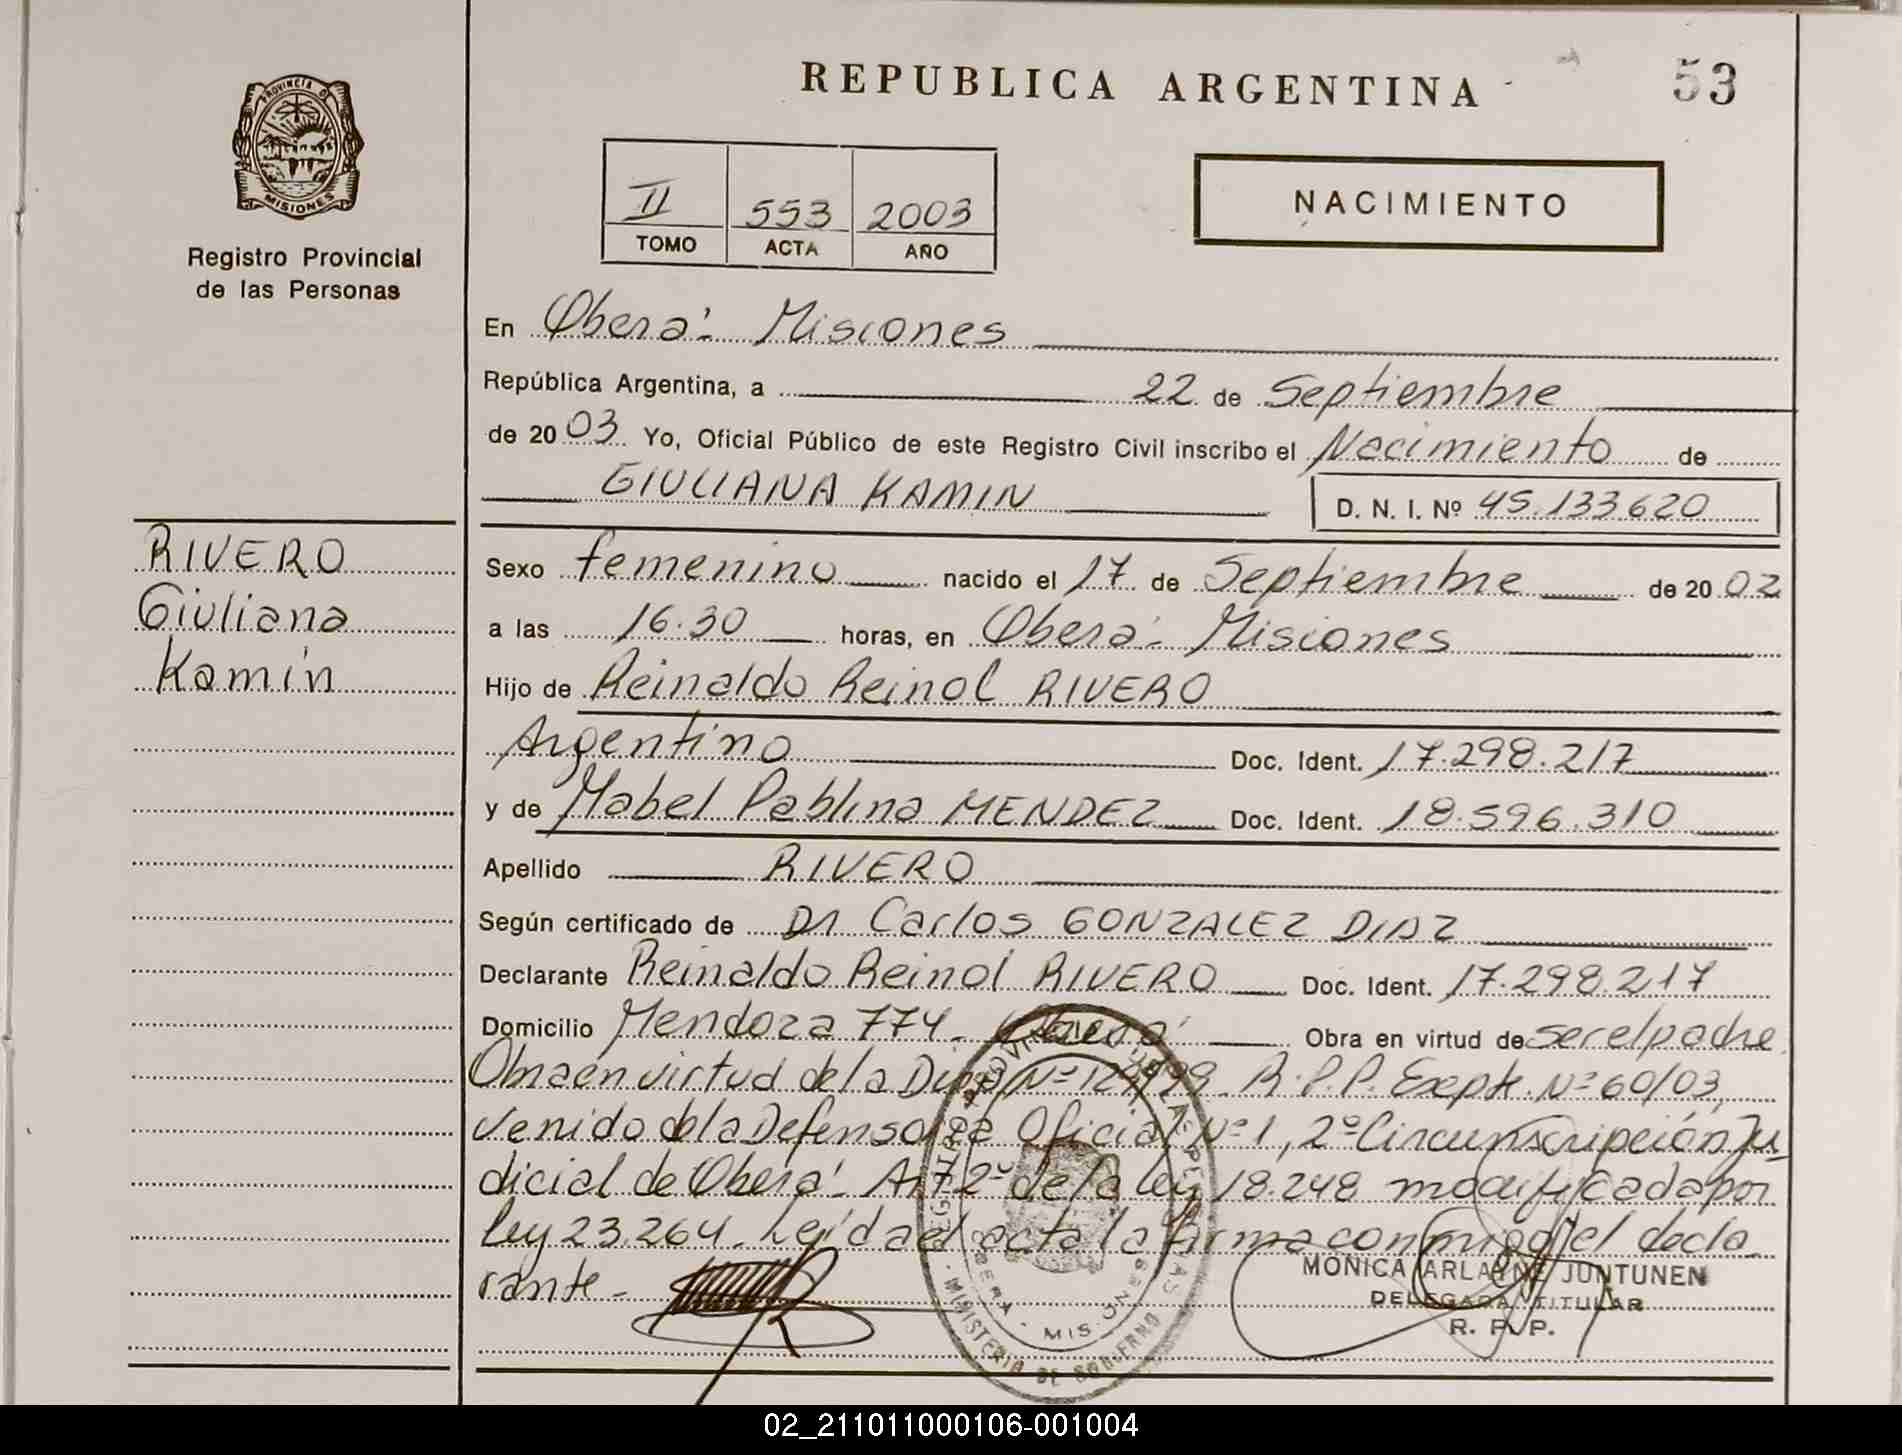 REPUBLICA ARGENTINA
53
PROVINCIA D
MISIONES
Registro Provincial
de las Personas
II 553 2003
TOMO ACTA AÑO
NACIMIENTO
En Oberá - Misiones
República Argentina, a 22 de Septiembre
de 2003 Yo, Oficial Público de este Registro Civil inscribo el Nacimiento de
GIULIANA KAMIN D. N. I. Nº 45.133.620
RIVERO
Giuliana
Kamin
Sexo femenino nacido el 17 de Septiembre de 2002
a las 16.30 horas, en Oberá - Misiones
Hijo de Reinaldo Reinol RIVERO
Argentino Doc. Ident. 17.298.217
y de Mabel Pablina MENDEZ Doc. Ident. 18.596.310
Apellido RIVERO
Según certificado de Dr Carlos GONZALEZ DIAZ
Declarante Reinaldo Reinol RIVERO Doc. Ident. 17.298.217
Domicilio Mendoza 774 - Oberá Obra en virtud de ser el padre.
Obra en virtud de la Disp. Nº R.P.P. Expte. Nº 60/03,
venido de la Defensoría Oficial Nº 1, 2º Circunscripción Ju-
dicial de Oberá - Art 2º de la ley 18.248 modificada por
ley 23.264. Leída el acta la firma conmigo el decla
rante -
MONICA ARLAYNE JUNTUNEN
DELEGADA TITULAR
R. P. P.
MINISTERIO DE GOBIERNO
OBERA - MISIONES
02_211011000106-001004